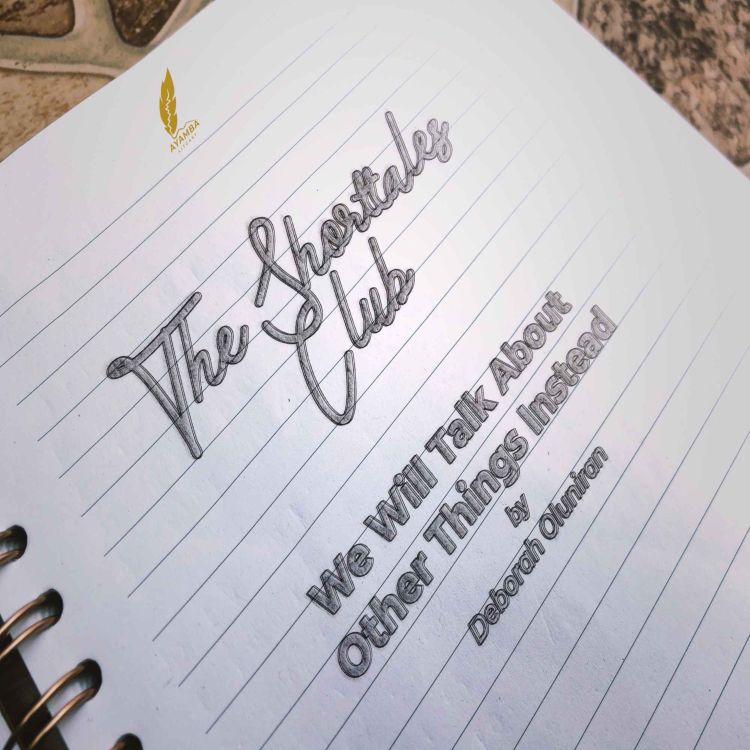 AYAMBA
LITCAST
The Shorttales
Club
We Will Talk About
Other Things Instead
by
Deborah Oluniran